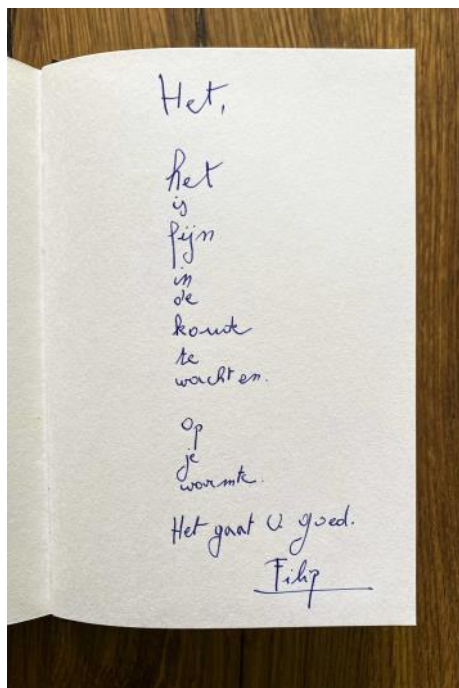 Het,
het
is
fijn
in
de
koude
te
wachten.
op
je
warmte.
Het gaat U goed.
Filip